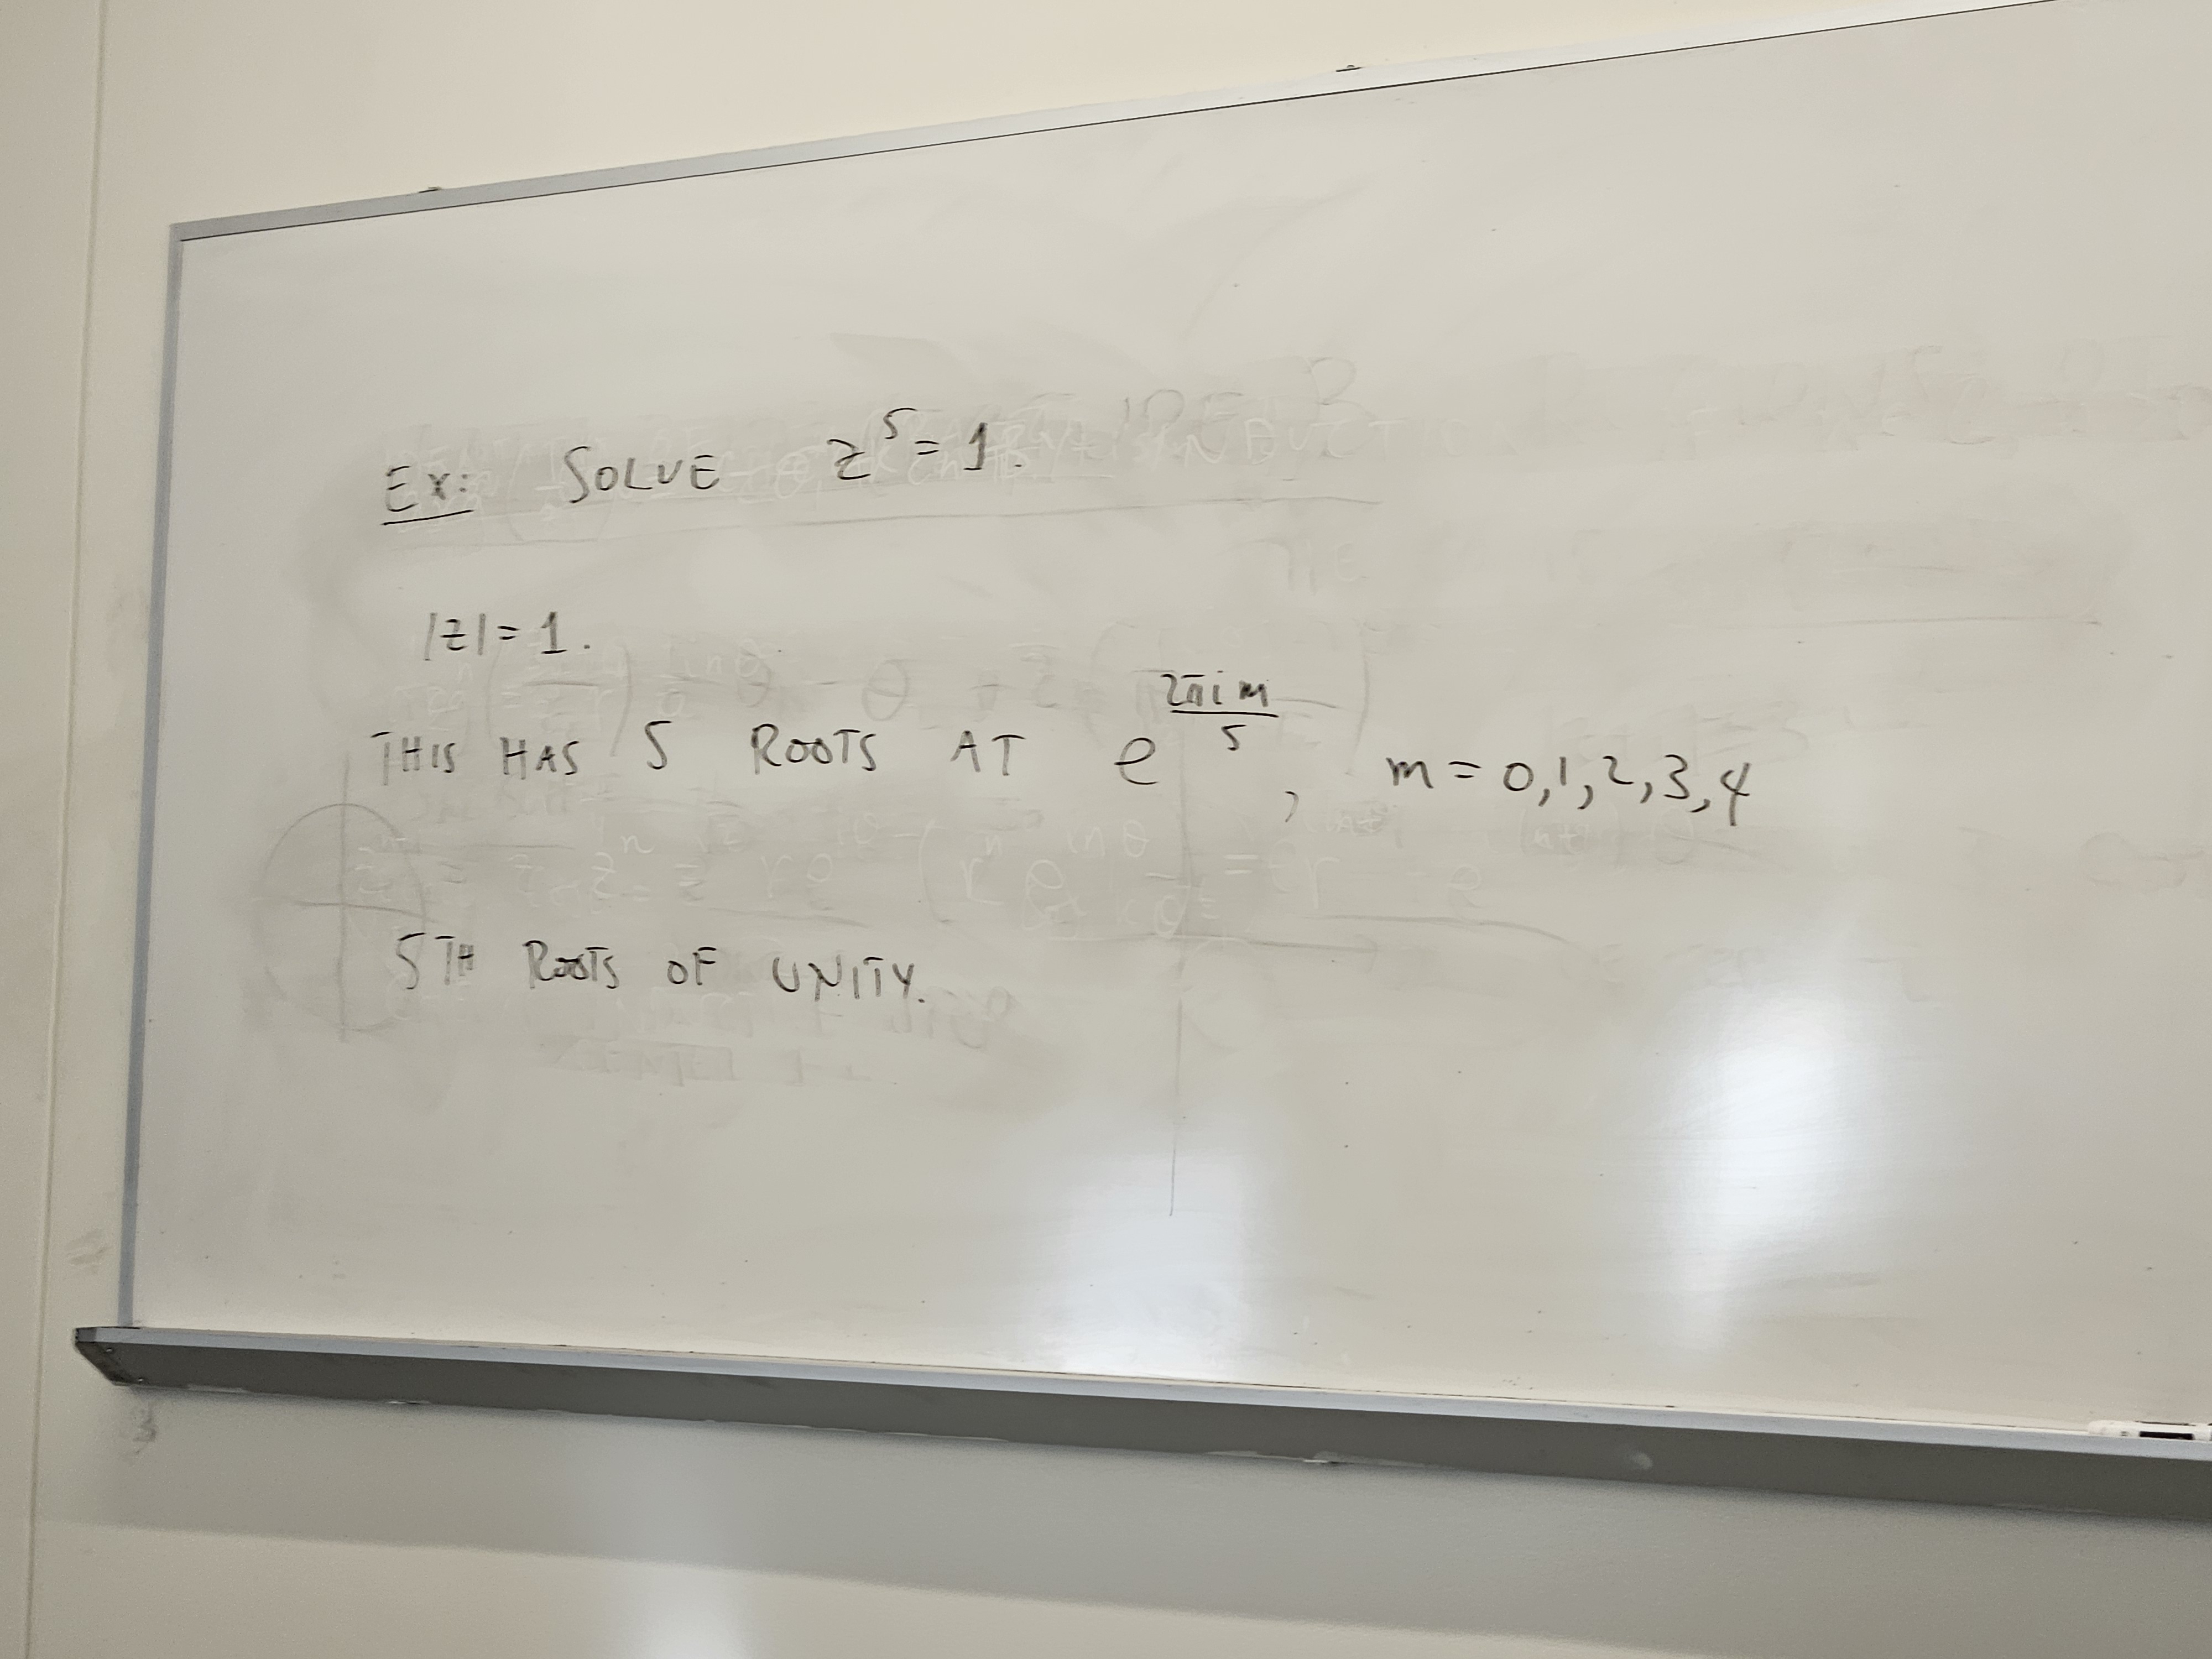 Ex: SOLVE z^5 = 1.
|z| = 1.
THIS HAS 5 ROOTS AT e^{2πim/5}, m = 0,1,2,3,4
5TH ROOTS OF UNITY.